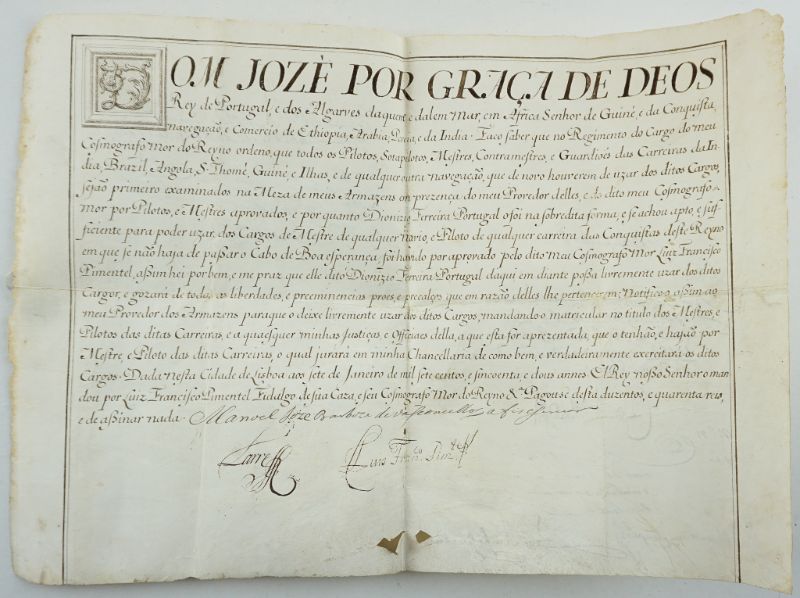 DOM JOZÈ POR GRAÇA DE DEOS
Rey de Portugal, e dos Algarves daquem, e dalem Mar, em Africa Senhor de Guiné, e da Conquista,
navegação, e Comercio de Ethiopia, Arabia, Percia, e da India. Faco saber que no Regimento do Cargo do meu
Cosmografo Mor do Reyno ordeno, que todos os Pilotos, Sotapilotos, Mestres, Contramestres, e Guardioés das Carreiras da In-
dia, Brazil, Angola, S. Thomé, Guiné, e Ilhas, e de qualquer outra navegação, que de novo houverem de uzar dos ditos Cargos,
sejão primeiro examinados na Meza de meus Armazens em prezença do meu Provedor delles, e do dito meu Cosmografo
mor por Pilotos, e Mestres aprovados, e por quanto Dionizio Ferreira Portugal o foi na sobredita fórma, e se achou apto, e suf-
ficiente para poder uzar, dos Cargos de Mestre de qualquer navio, e Piloto de qualquer carreira das Conquistas deste Reyno
em que se não haja de passar o Cabo de Boa esperança, foi havido por aprovado pelo dito meu Cosmografo Mor Luiz Francisco
Pimentel, assim hei por bem, e me praz que elle dito Dionizio Ferreira Portugal daqui em diante possa livremente uzar dos ditos
Cargos, e gozará de todas as liberdades, e preeminencias proes, e precalços que em razão delles lhe pertencerem; Notifico o assim ao
meu Provedor dos Armazens para que o deixe livremente uzar dos ditos Cargos, mandando o matricular no titulo dos Mestres, e
Pilotos das ditas Carreiras, e a quaesquer minhas Justiças, e Officiaes della, a que esta for aprezentada, que o tenhão, e hajão por
Mestre, e Piloto das ditas Carreiras, o qual jurará em minha Chancellaria de como bem, e verdadeiramente exercitará os ditos
Cargos. Dada nesta Cidade de Lisboa aos sete de Janeiro de mil sete centos, e sincoenta, e dous annos. El Rey nosso Senhor o man-
dou por Luiz Francisco Pimentel Fidalgo de sua Caza, e seu Cosmografo Mor do Reyno &ª. Pagouse desta duzentos, e quarenta reis,
e de assinar nada. Manoel Joze Barboza de Vasconcellos a fis escrever
Luis Franco. Pimtel